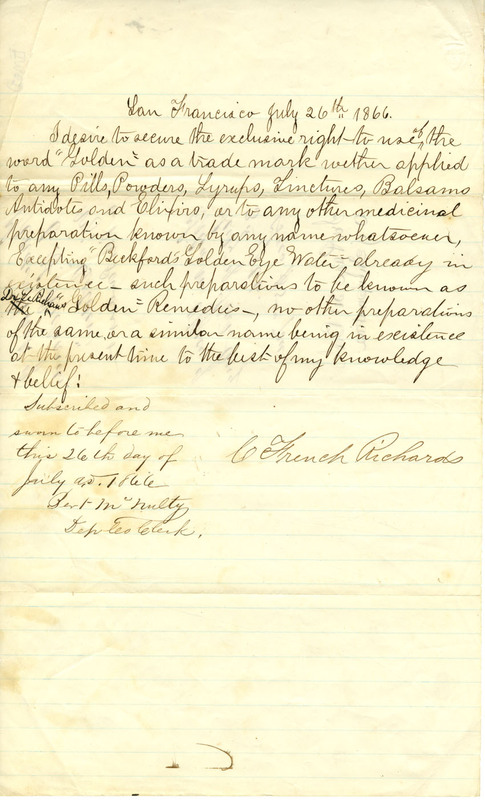 San Francisco July 26th 1866.
I desire to secure the exclusive right to use of the
word "Golden" as a trade mark wether applied
to any Pills, Powders, Syrups, Tinctures, Balsams
Antidotes and Elixirs, or to any other medicinal
preparation known by any name whatsoever,
Excepting "Bickford's Golden Eye Water" already in
existence – such preparations to be known as
the Golden Remedies –, no other preparations
of the same, or a similar name being in existence
at the present time to the best of my knowledge
& belief:
Subscribed and
sworn to before me
this 26th day of
July A.D. 1866
C French Richards
McNulty
Dep Co Clerk.